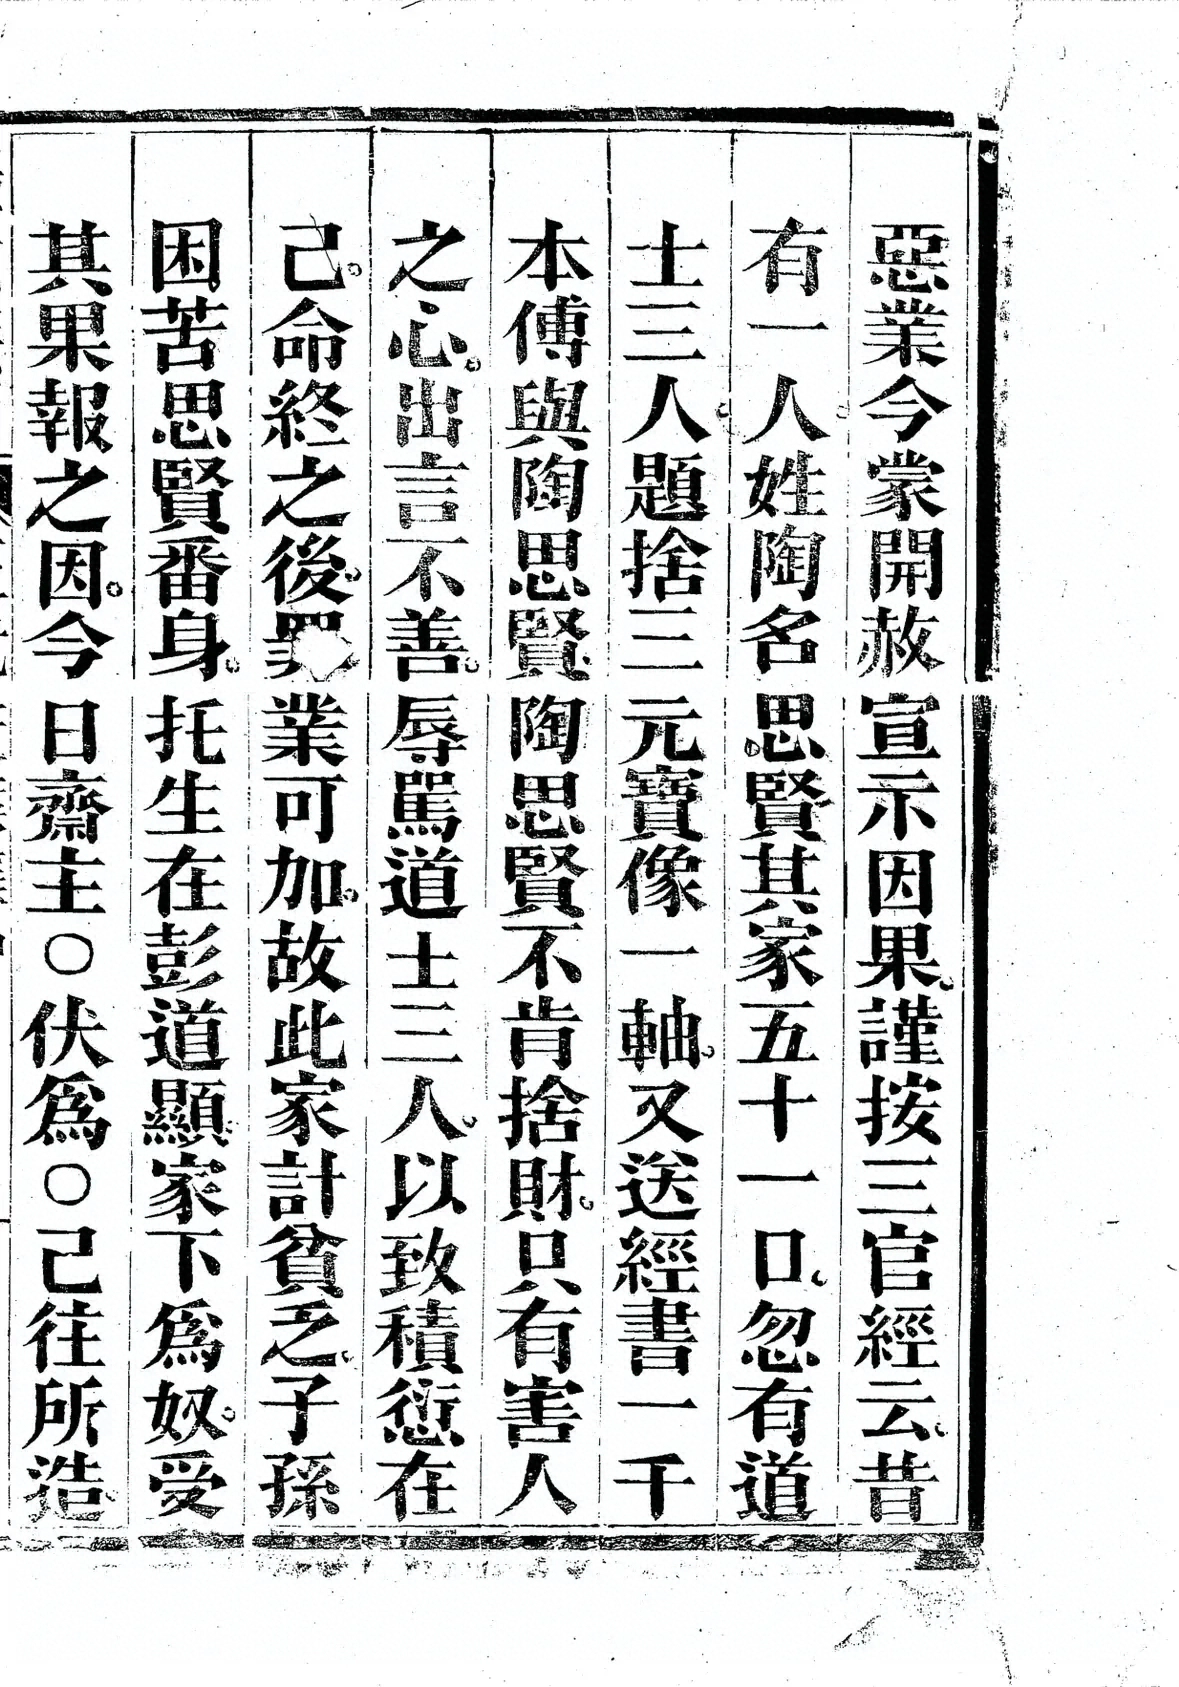 惡業今蒙開赦宣示因果。謹按三官經云。昔
有一人。姓陶名思賢其家五十一口。忽有道
士三人。題捨三元寶像一軸。又送經書一千
本傅與陶思賢。陶思賢不肯捨財。只有害人
之心。出言不善。辱罵道士三人。以致積愆在
己。命終之後。罪業可加。故此家計貧乏。子孫
困苦思賢番身。托生在彭道顯家下爲奴。受
其果報之因。今日齋主○伏爲○己往所造。